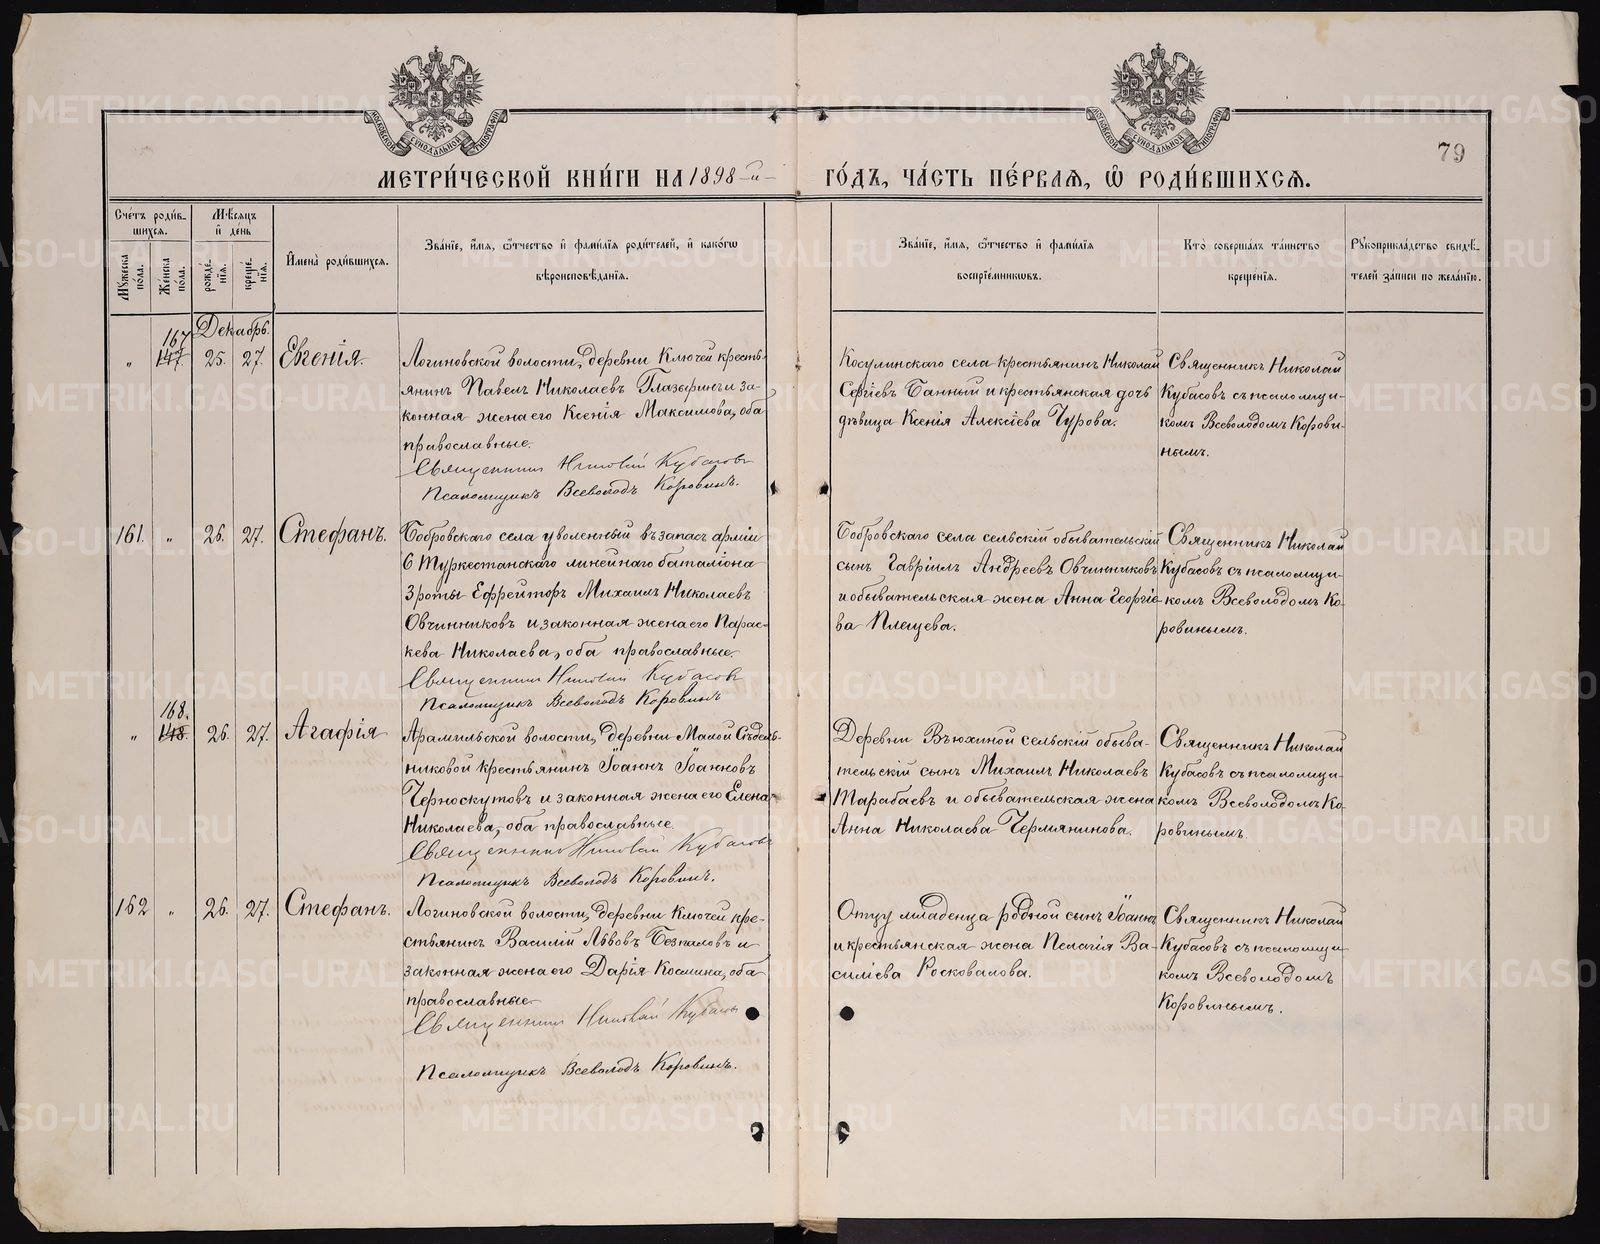 МОСКОВСКОЙ СѴНОДАЛЬНОЙ ТИПОГРАФІИ
МОСКОВСКОЙ СѴНОДАЛЬНОЙ ТИПОГРАФІИ
79
МЕТРИ́ЧЕСКОЙ КНИ́ГИ НА 1898-й
ГО́ДЪ, ЧА́СТЬ ПЕ́РВАЯ, Ѽ РОДИ́ВШИХСЯ.
Сче́тъ роди́в-
шихся.
Мꙋжеска по́ла.
Женска по́ла.
Мѣсяцъ и де́нь
рожде́-нїя.
креще́-нїя.
Имена̀ роди́вшихся.
Зва́нїе, и́мя, ѻ́тчество и фами́лїя роди́телей, и како́гѡ
вѣроисповѣ́данїя.
Зва́нїе, и́мя, ѻ́тчество и фами́лїя
воспрїе́мникѡвъ.
Кто̀ соверша́лъ та́инство
креще́нїя.
Рꙋкоприкла́дство свидѣ́-
телей за́писи по жела́нїю.
Декабрь.
„ 167 147. 25. 27. Евгенія.
Логиновской волости, деревни Ключей кресть-
янинъ Павелъ Николаевъ Глазыринъ и за-
конная жена его Ксенія Максимова, оба
православные.
Священникъ Николай Кубасовъ
Псаломщикъ Всеволодъ Коровинъ.
Косулинскаго села крестьянинъ Николай
Сергіевъ Банный и крестьянская дочь
дѣвица Ксенія Алексіева Чурова.
Священникъ Николай
Кубасовъ съ псаломщи-
комъ Всеволодомъ Корови-
нымъ.
161. „ 26. 27. Стефанъ.
Бобровскаго села уволенный въ запасъ арміи
6 Туркестанскаго линейнаго баталіона
3 роты Ефрейторъ Михаилъ Николаевъ
Овчинниковъ и законная жена его Парас-
кева Николаева, оба православные.
Священникъ Николай Кубасовъ
Псаломщикъ Всеволодъ Коровинъ
Бобровскаго села сельскій обывательскій
сынъ Гавріилъ Андреевъ Овчинниковъ
и обывательская жена Анна Георгіе-
ва Плещева.
Священникъ Николай
Кубасовъ съ псаломщи-
комъ Всеволодомъ Ко-
ровинымъ.
„ 168. 148. 26. 27. Агафія
Арамильской волости, деревни Малой Сѣдель-
никовой крестьянинъ Іоаннъ Іоанновъ
Черноскутовъ и законная жена его Елена
Николаева, оба православные.
Священникъ Николай Кубасовъ
Псаломщикъ Всеволодъ Коровинъ.
Деревни Вьюхиной сельскій обыва-
тельскій сынъ Михаилъ Николаевъ
Тарабаевъ и обывательская жена
Анна Николаева Чермянинова.
Священникъ Николай
Кубасовъ съ псаломщи-
комъ Всеволодомъ Ко-
ровинымъ.
162 „ 26. 27. Стефанъ.
Логиновской волости, деревни Ключей кре-
стьянинъ Василій Львовъ Безпаловъ и
законная жена его Дарія Космина, оба
православные
Священникъ Николай Кубасовъ
Псаломщикъ Всеволодъ Коровинъ.
Отцу младенца родной сынъ Іоаннъ
и крестьянская жена Пелагія Ва-
силіева Росковалова.
Священникъ Николай
Кубасовъ съ псаломщи-
комъ Всеволодомъ
Коровинымъ.
METRIKI.GASO-URAL.RU